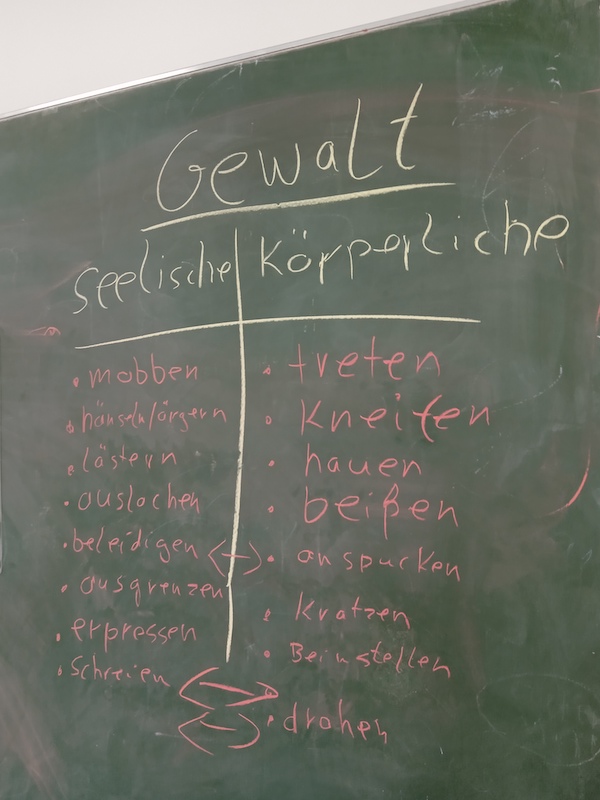 Gewalt
seelische
• mobben
• hänseln/ärgern
• lästern
• auslachen
• beleidigen <->
• ausgrenzen
• erpressen
• Schreien <->
Körperliche
• treten
• Kneifen
• hauen
• beißen
• anspucken
• Kratzen
• Beinstellen
<-> • drohen